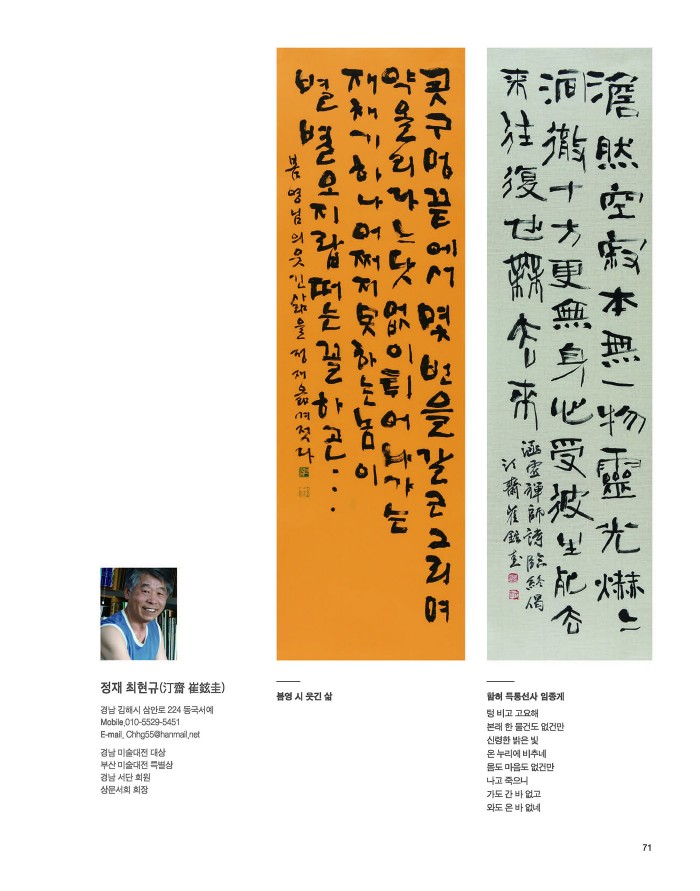 콧구멍끝에서몇번을갈근그리며
약올리라느닷없이튀어나가는
재채기하나어쩌지못하는놈이
별별오지랖떠는꼴하곤···
봄영님의웃긴삶을정재옮겨적다
澹然空寂本無一物靈光爀々
洞徹十方更無身心受彼生死去
来往復也無去來
涵虛禪師詩臨終偈
汀齋崔鉉圭
정재 최현규(汀齋 崔鉉圭)
경남 김해시 삼안로 224 동국서예
Mobile.010-5529-5451
E-mail. Chhg55@hanmail.net
경남 미술대전 대상
부산 미술대전 특별상
경남 서단 회원
상문서회 회장
봄영 시 웃긴 삶
함허 득통선사 임종게
텅 비고 고요해
본래 한 물건도 없건만
신령한 밝은 빛
온 누리에 비추네
몸도 마음도 없건만
나고 죽으니
가도 간 바 없고
와도 온 바 없네
71